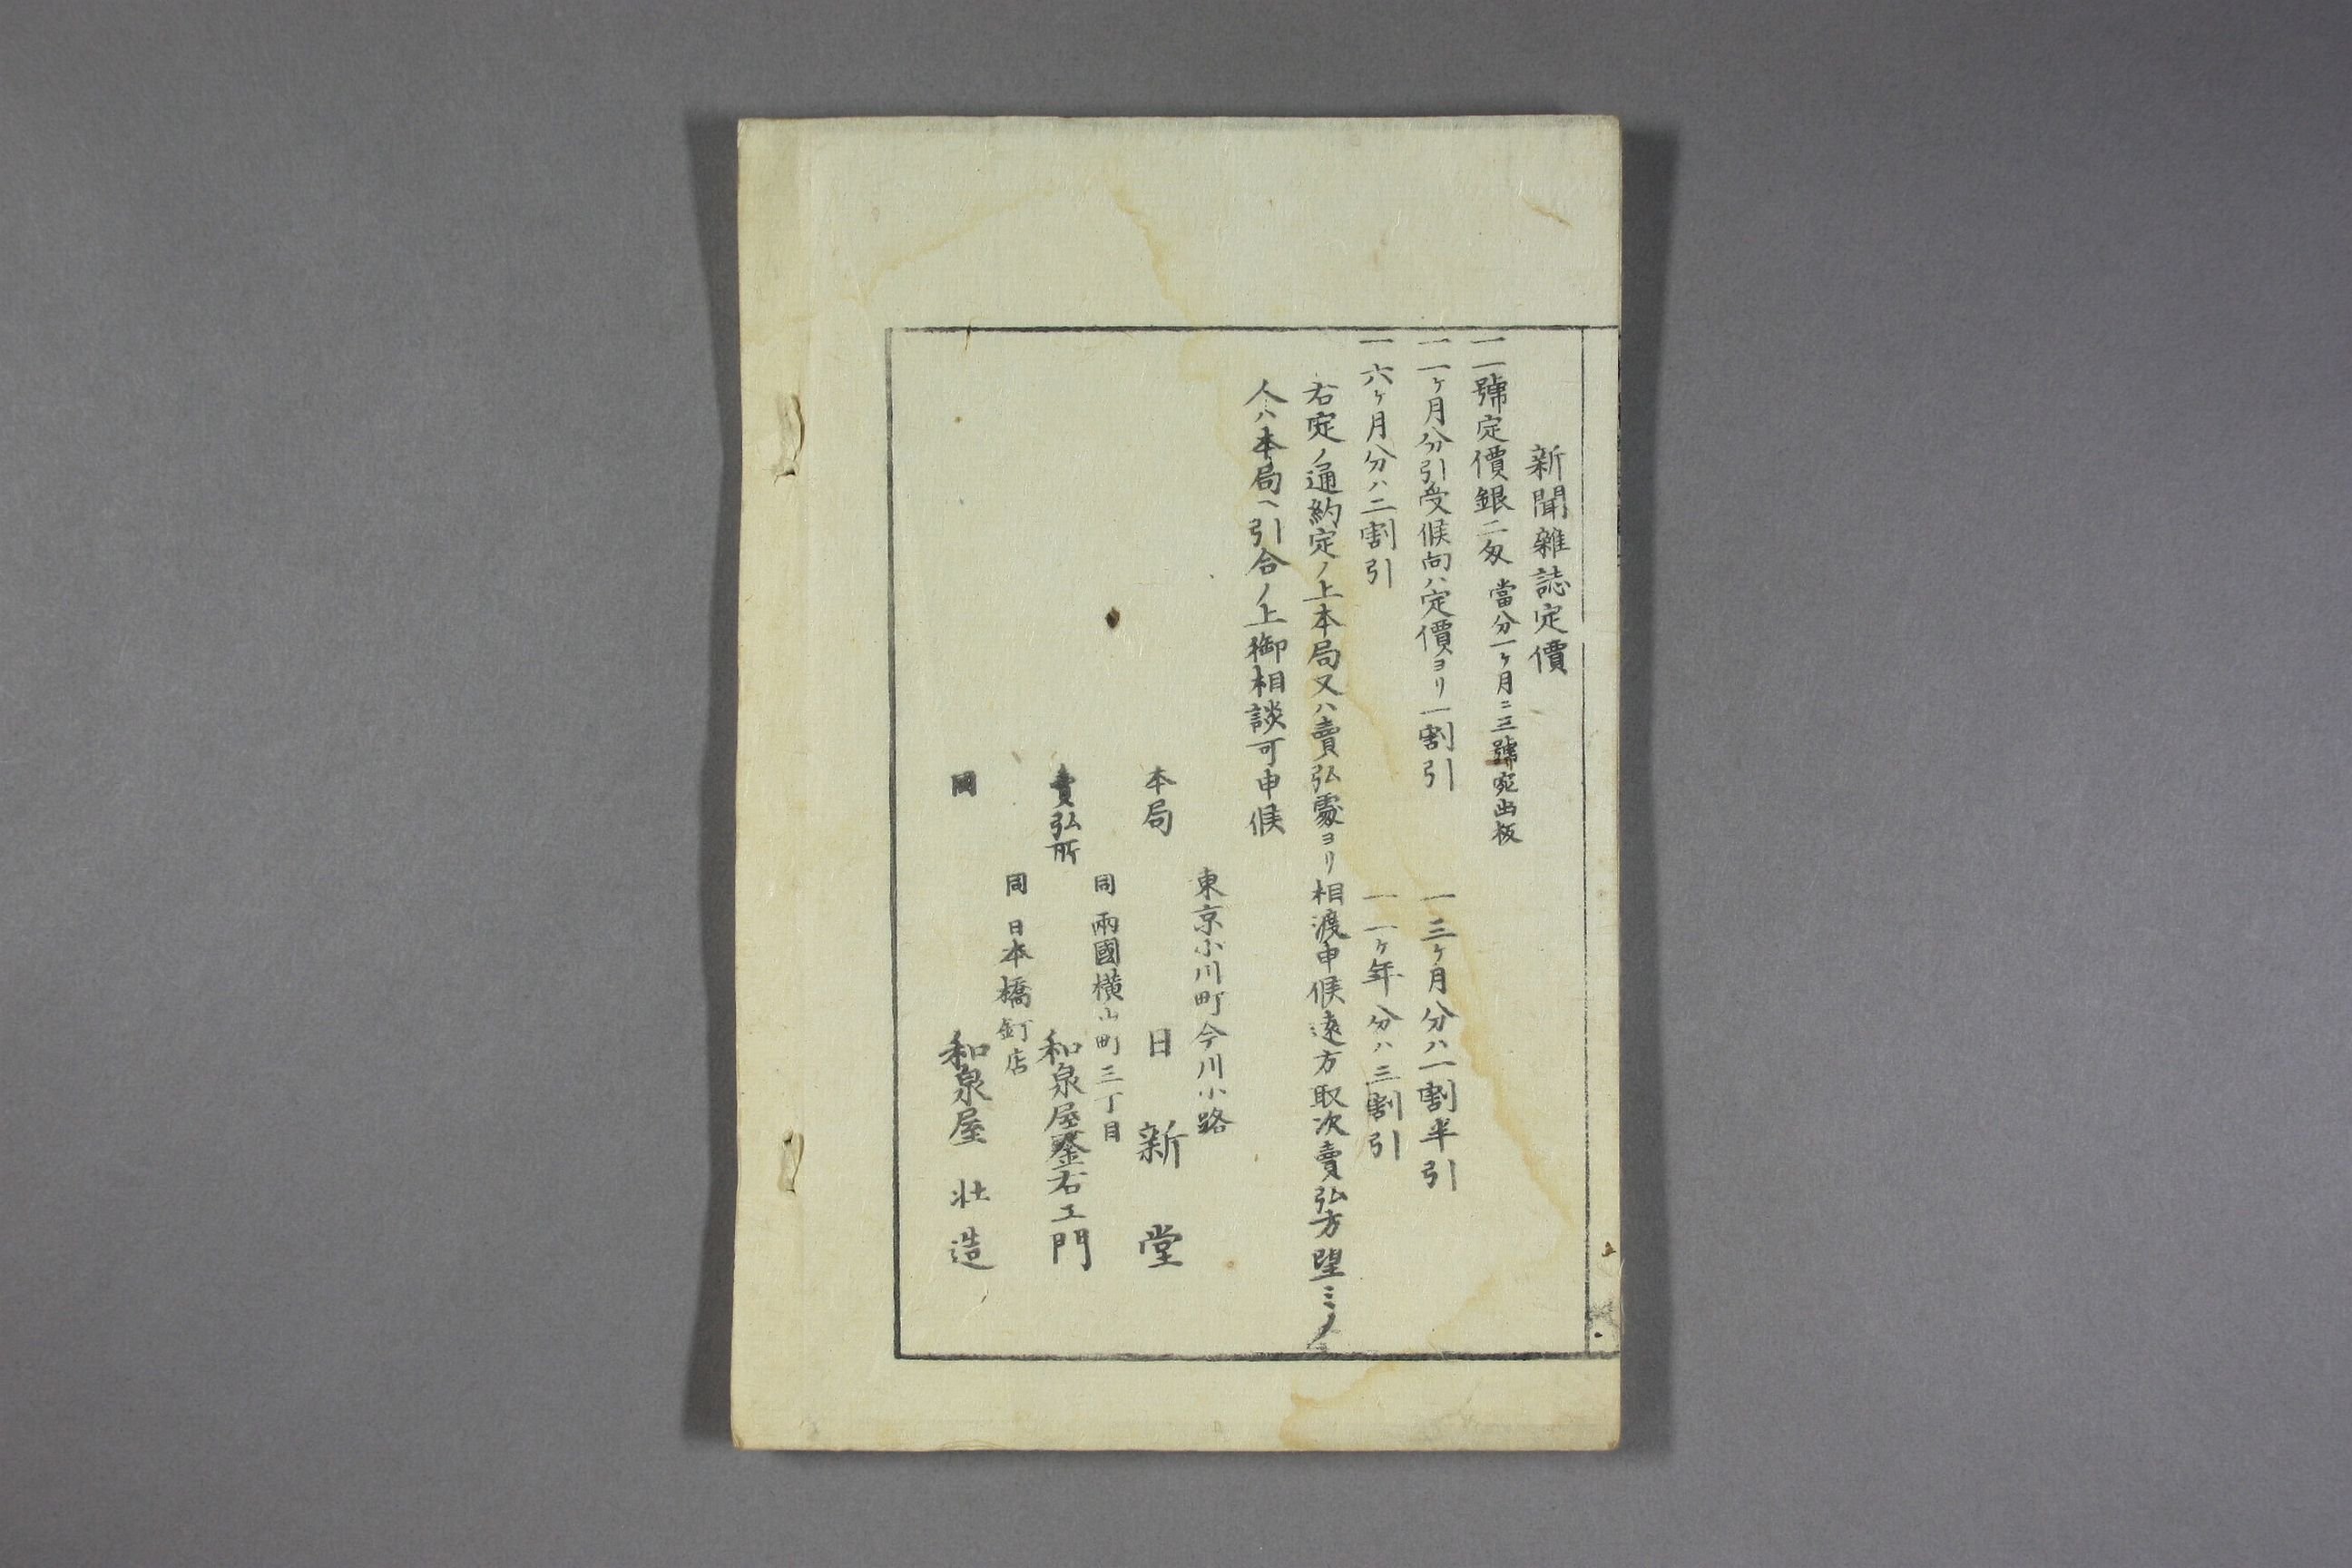 新聞雜誌定價
一一號定價銀二匁 當分一ヶ月ニ三號宛出板
一一ヶ月分引受候向ハ定價ヨリ一割引 一三ヶ月分ハ一割半引
一六ヶ月分ハ二割引 一一ヶ年分ハ三割引
右定ノ通約定ノ上本局又ハ賣弘處ヨリ相渡申候遠方取次賣弘方望ミノ
人ハ本局ヘ引合ノ上御相談可申候
東京小川町今川小路
本局 日新堂
同 兩國橫山町三丁目
賣弘所 和泉屋金右エ門
同 日本橋釘店
同 和泉屋壮造